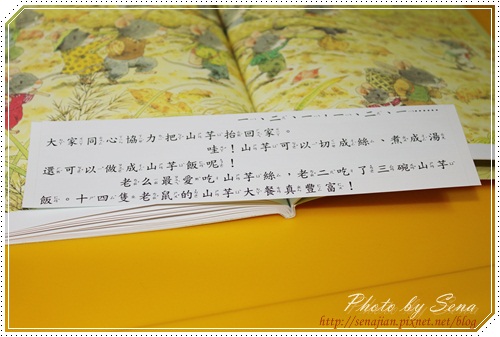 一、二、一、一、二、一、
大家同心協力把山芋抬回家。
哇！山芋可以切成絲，煮成湯
還可以做成山芋飯呢！
老么最愛吃山芋絲，老二吃了三碗山芋
飯。十四隻老鼠的山芋大餐真豐富！
Photo by Sena
http://senajian.pixnet.net/blog